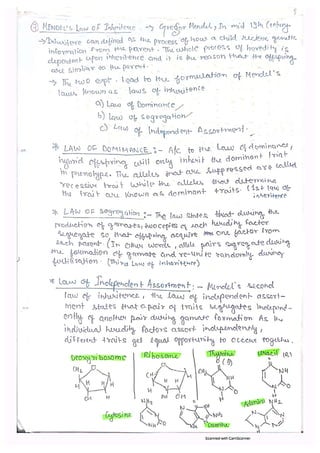 MENDEL'S LAW OF Inheritence. -> Gregor Mendel, In mid 19th Century
-> Inheritence can defined as the process of how a child receive genetic
information from the parent. The whole process of heredity is
dependent upon inheritence and it is the reason that the offspring
are similar to the parent.
-> The two expt. lead to the formulation of Mendel's
laws known as laws of inheritance
a) Law of Dominance
b) law of segregation
c) law of Independent Assortment.
* LAW OF DOMINANCE :- A/c to the law of dominance,
hybrid offspring will only inherit the dominant trait
in phenotype. The alleles that are suppressed are called
recessive trait while the alleles that determine
the trait are known as dominant traits. (1st law of
inheritence
* LAW OF segregation :- The law states that during the
production of gametes, two copies of each heridity factor
segregate so that offspring acquire one factor from
each parent (In other words, allele pairs segregate during
the formation of gamate and re-unite randomly during
fertilisation. (Third Law of inheritance)
* Law of Independent Assortment :- Mendel's second
law of inheritence, the law of independent assort-
ment states that a pair of traits segregates independ-
ently of another pair during gamate formation As the
individual heridity factors assort independently,
different traits get equal opportunity to occur together.
Deoxyribosome Ribosome Thymine Uracil
Cytosine Guanine Adenine NH2
Scanned with CamScanner